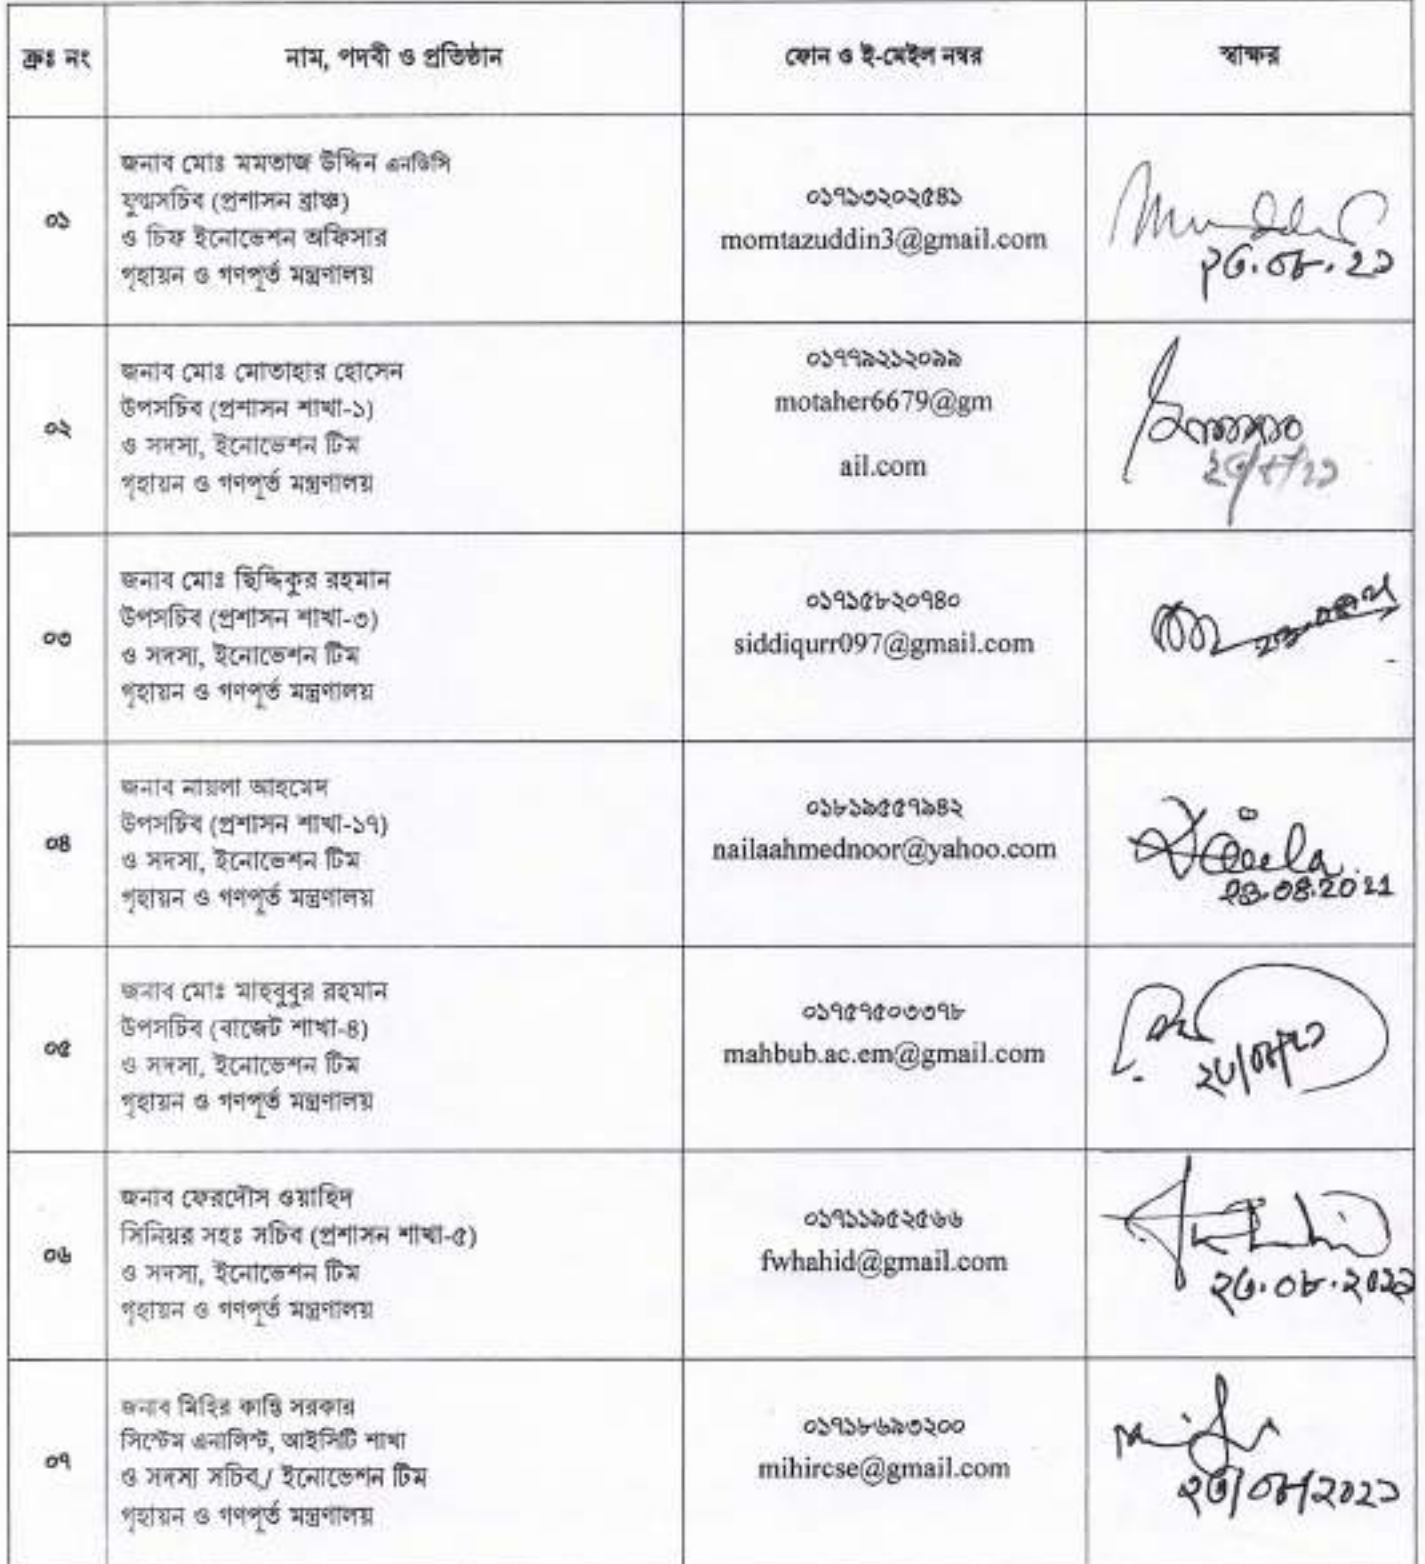 ক্রঃ নং নাম, পদবী ও প্রতিষ্ঠান ফোন ও ই-মেইল নম্বর স্বাক্ষর
০১
জনাব মোঃ মমতাজ উদ্দিন এনডিসি
যুগ্মসচিব (প্রশাসন ব্রাঞ্চ)
ও চিফ ইনোভেশন অফিসার
গৃহায়ন ও গণপূর্ত মন্ত্রণালয়
০১৭১৩২০২৫৪১
momtazuddin3@gmail.com
২৩.০৮.২১
০২
জনাব মোঃ মোতাহার হোসেন
উপসচিব (প্রশাসন শাখা-১)
ও সদস্য, ইনোভেশন টিম
গৃহায়ন ও গণপূর্ত মন্ত্রণালয়
০১৭৭৯২১২০৯৯
motaher6679@gm
ail.com
২৩/৮/২১
০৩
জনাব মোঃ ছিদ্দিকুর রহমান
উপসচিব (প্রশাসন শাখা-৩)
ও সদস্য, ইনোভেশন টিম
গৃহায়ন ও গণপূর্ত মন্ত্রণালয়
০১৭১৫৮২০৭৪০
siddiqurr097@gmail.com
০৪
জনাব নায়লা আহমেদ
উপসচিব (প্রশাসন শাখা-১৭)
ও সদস্য, ইনোভেশন টিম
গৃহায়ন ও গণপূর্ত মন্ত্রণালয়
০১৮১৯৫৫৭৯৪২
nailaahmednoor@yahoo.com
Naila
23.08.2021
০৫
জনাব মোঃ মাহবুবুর রহমান
উপসচিব (বাজেট শাখা-৪)
ও সদস্য, ইনোভেশন টিম
গৃহায়ন ও গণপূর্ত মন্ত্রণালয়
০১৭৫৭৫০৩৩৭৮
mahbub.ac.em@gmail.com
২৩/০৮/২১
০৬
জনাব ফেরদৌস ওয়াহিদ
সিনিয়র সহঃ সচিব (প্রশাসন শাখা-৫)
ও সদস্য, ইনোভেশন টিম
গৃহায়ন ও গণপূর্ত মন্ত্রণালয়
০১৭১১৯৫২৫৬৬
fwhahid@gmail.com
২৩.০৮.২০২১
০৭
জনাব মিহির কান্তি সরকার
সিস্টেম এনালিস্ট, আইসিটি শাখা
ও সদস্য সচিব,/ ইনোভেশন টিম
গৃহায়ন ও গণপূর্ত মন্ত্রণালয়
০১৭১৮৬৯৩২০০
mihircse@gmail.com
২৩/০৮/২০২১